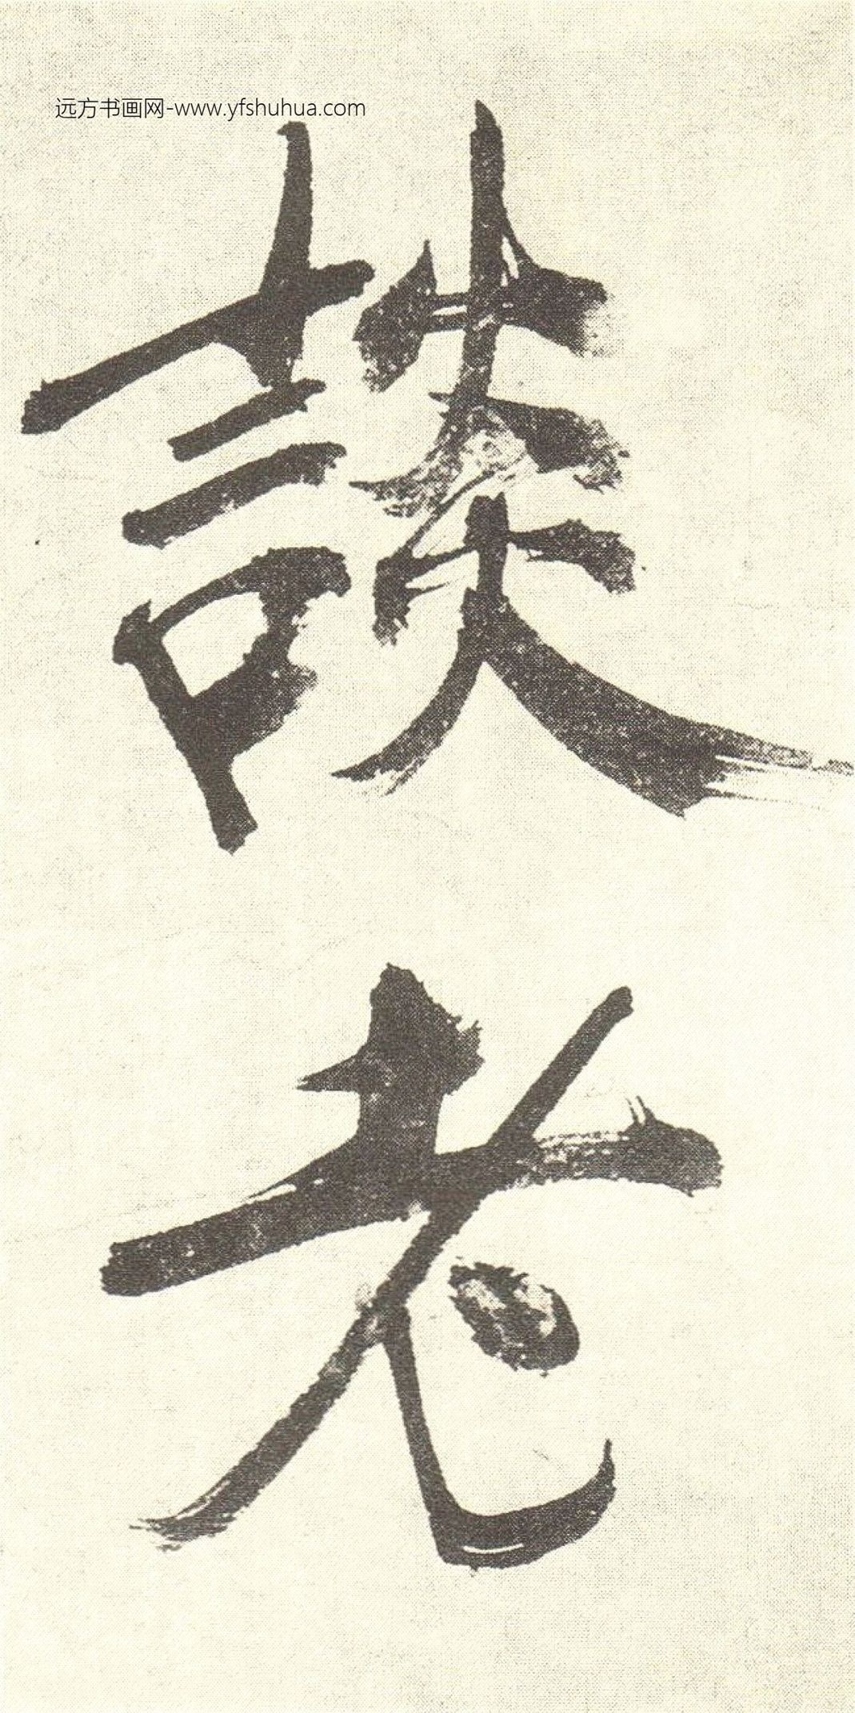 远方书画网-www.yfshuhua.com
談
老